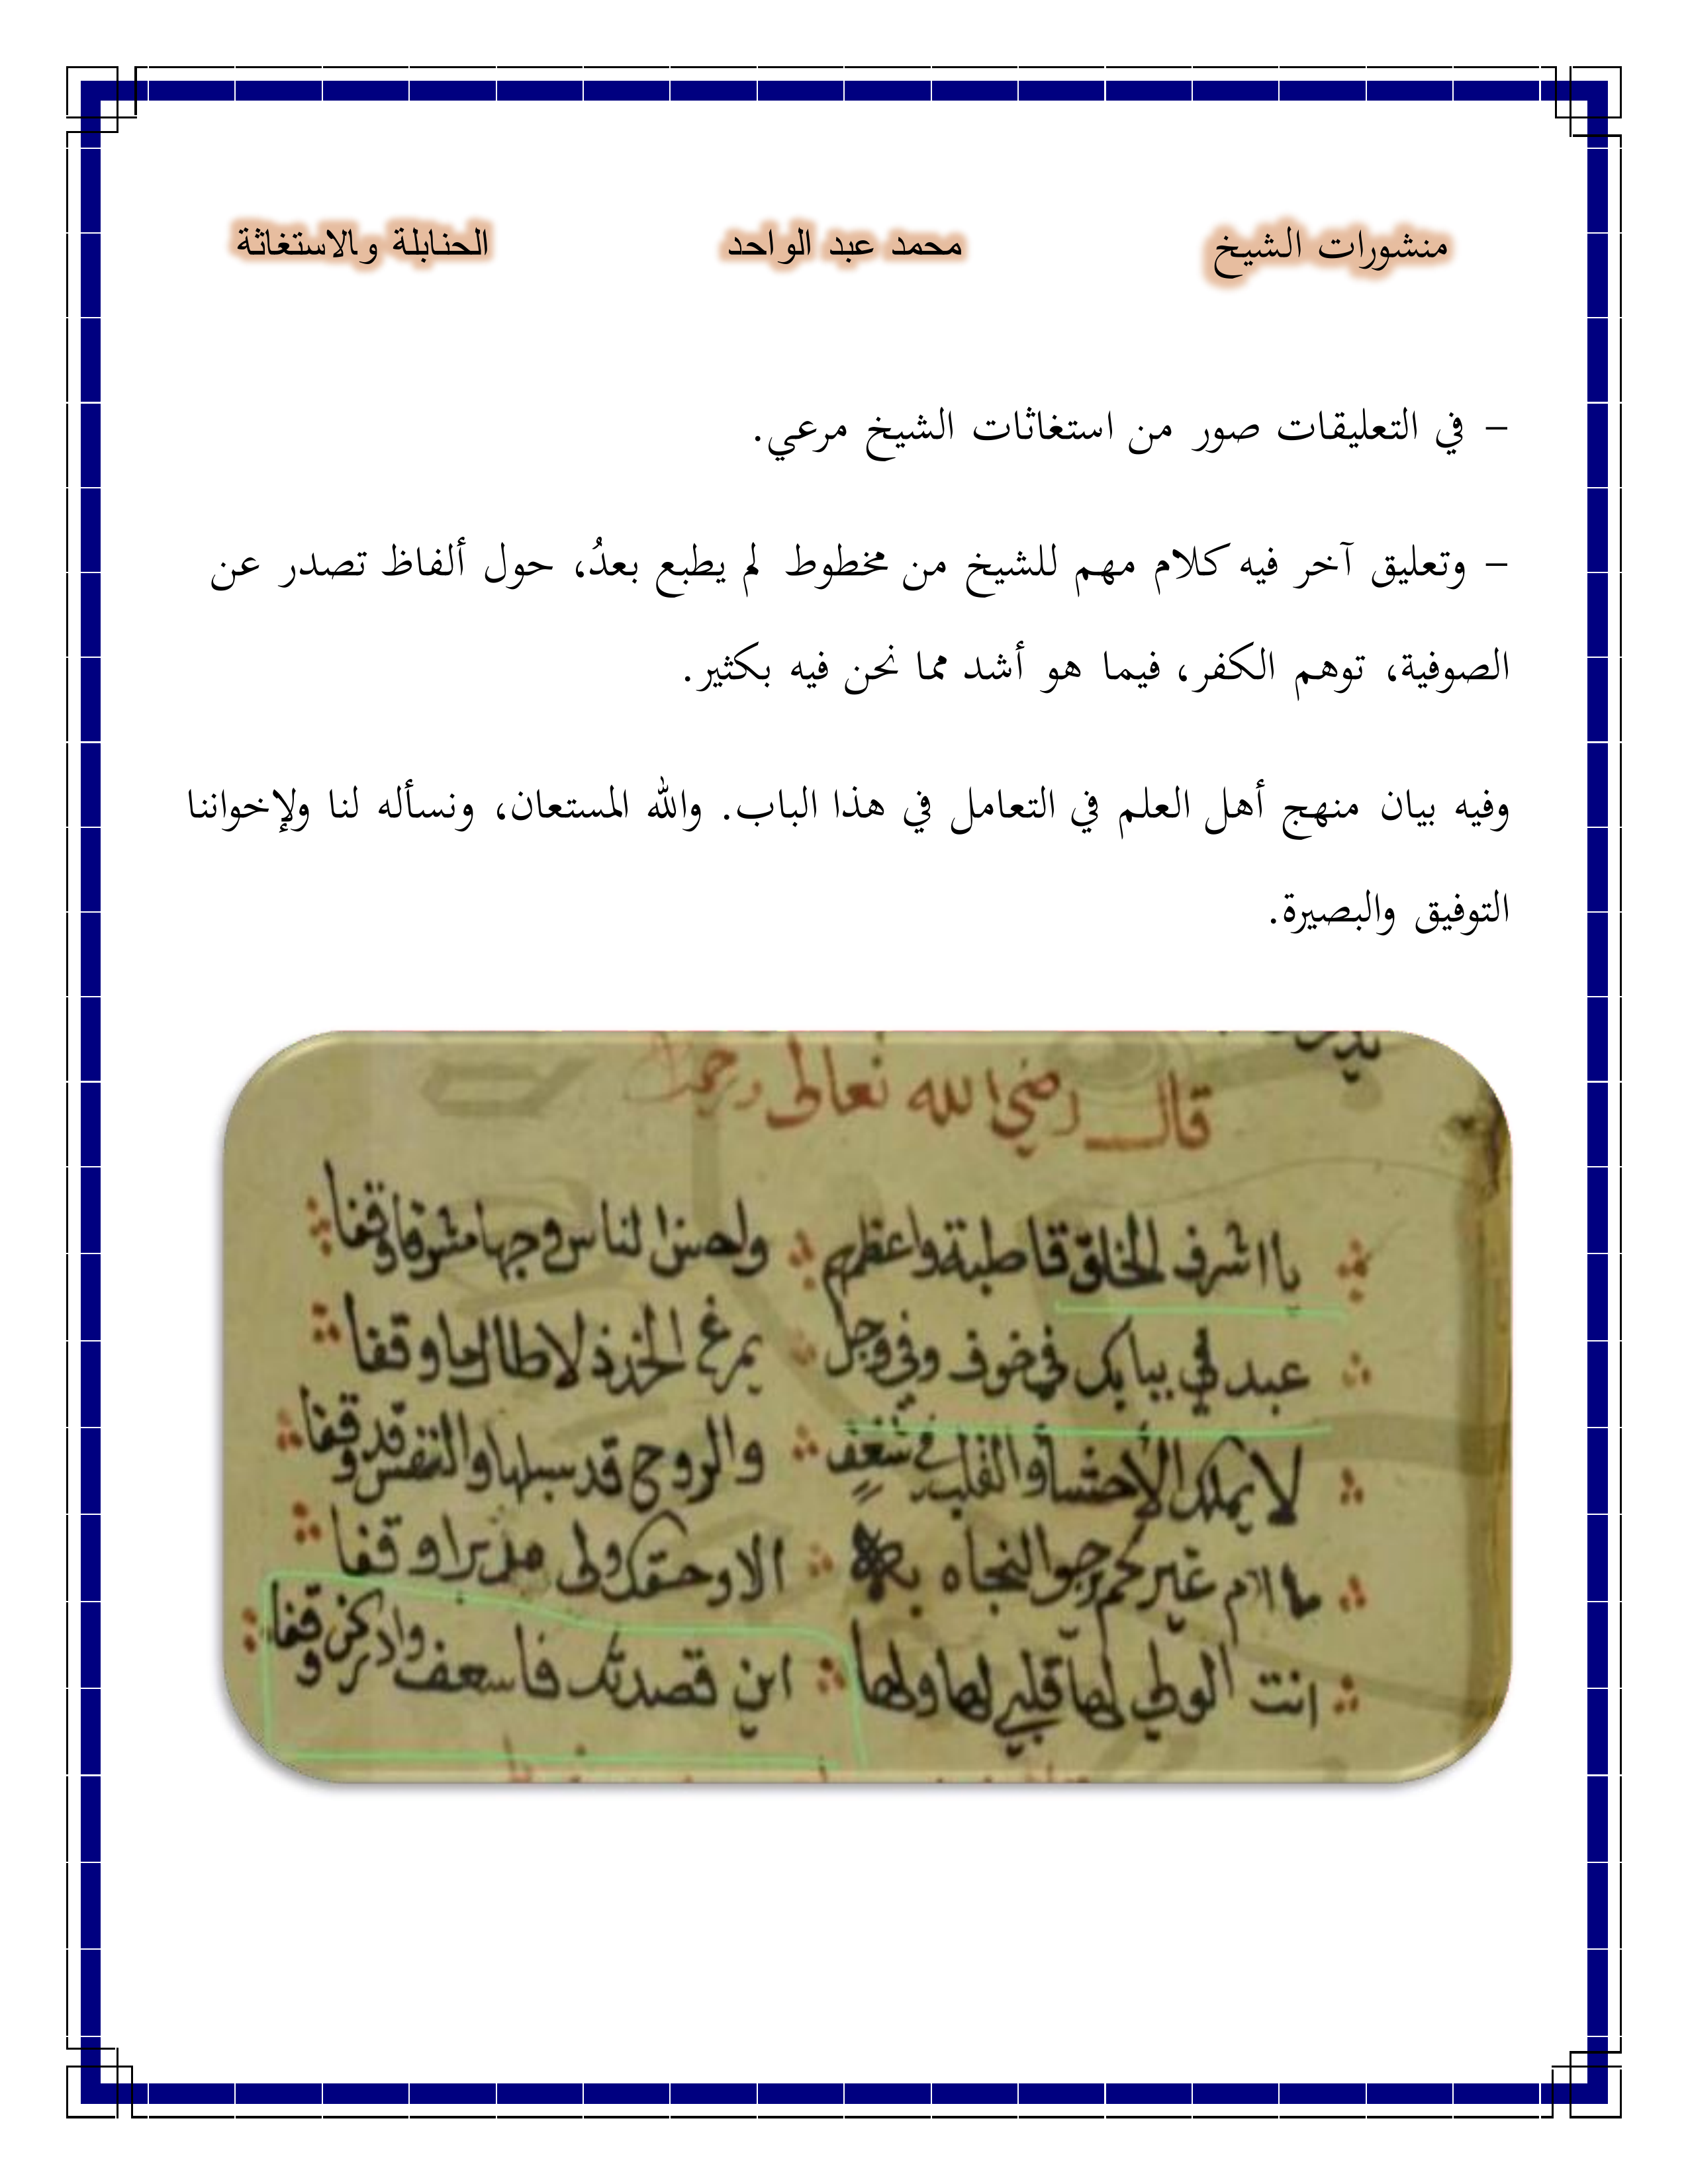 منشورات الشيخ محمد عبد الواحد الحنابلة والاستغاثة
– في التعليقات صور من استغاثات الشيخ مرعي.
– وتعليق آخر فيه كلام مهم للشيخ من مخطوط لم يطبع بعدُ، حول ألفاظ تصدر عن
الصوفية، توهم الكفر، فيما هو أشد مما نحن فيه بكثير.
وفيه بيان منهج أهل العلم في التعامل في هذا الباب. والله المستعان، ونسأله لنا ولإخواننا
التوفيق والبصيرة.
قال رضي الله تعالى
يا اشرف الخلق قاطبة واعظمهم واحسن الناس وجها مشرقا وقفا
عبد في بابك في خوف وفي وجل يمرغ الخد ذلا طالما وقفا
لا يملك الأحشا والقلب في شغف والروح قد سبلها والنفس قد وقفا
غيركم يرجو النجاه به الا وحقك ولى مدبرا وقفا
انت الولي لها قلبي لها ولها اني قصدتك فاسعف وادركني وقفا